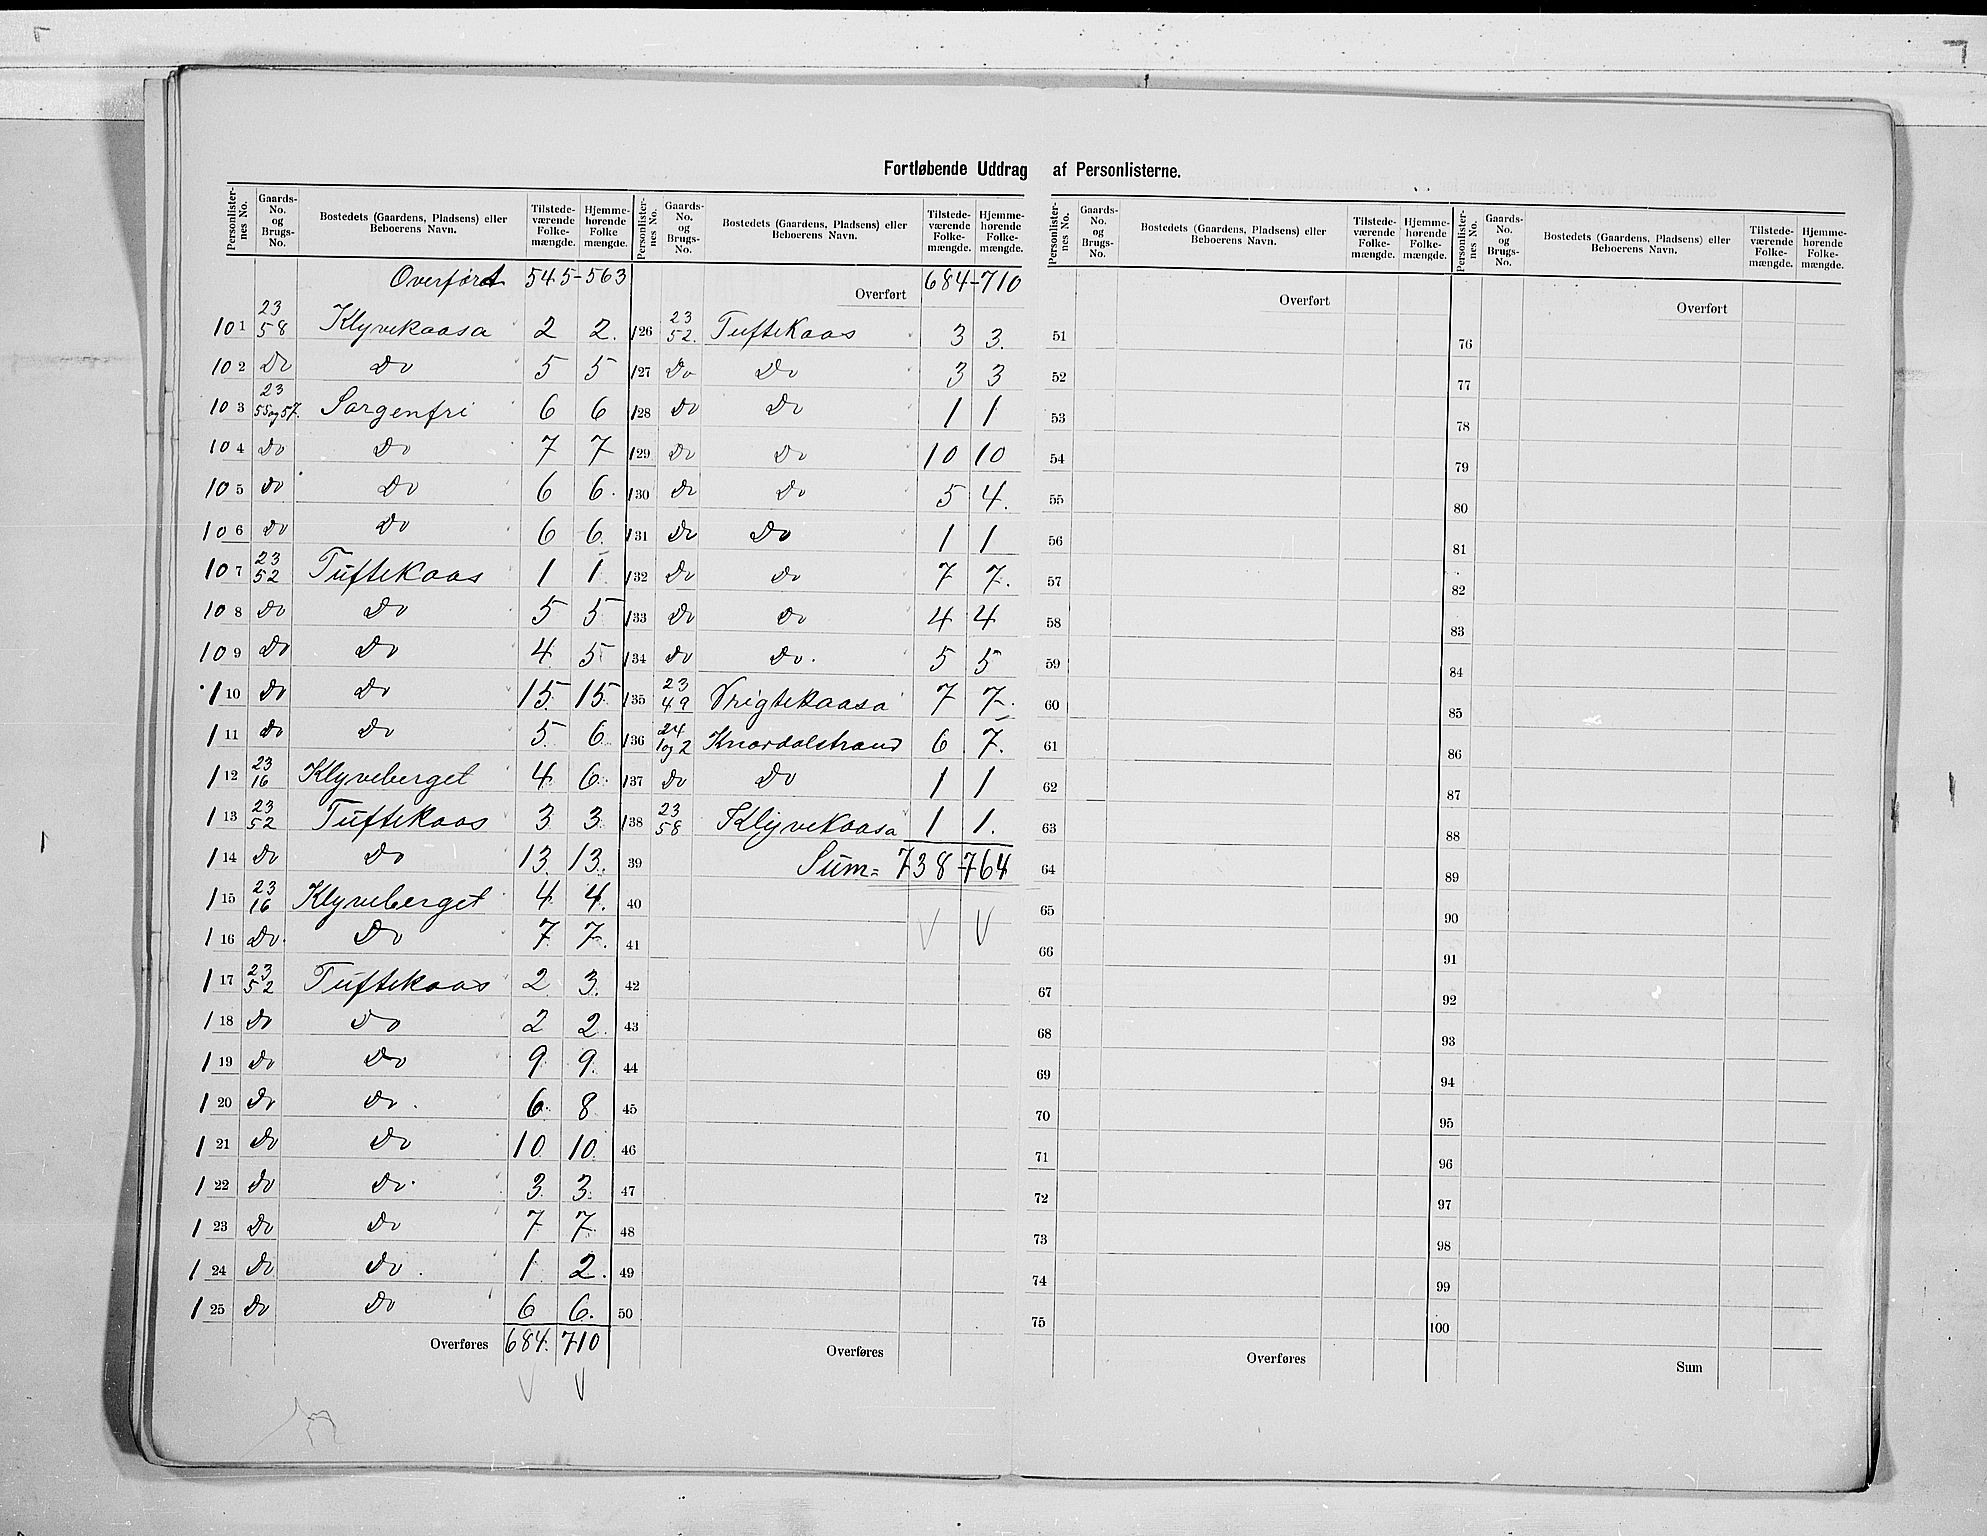 Fortløbende Uddrag af Personlisternе.
Personlister-nes No. Gaards-No. og Brugs-No. Bostedets (Gaardens, Pladsens) eller Beboerens Navn. Tilstede-værende Folke-mængde. Hjemme-hørende Folke mængde.
Overført 545-563
101 23 58 Klyvekaasa 2 2.
102 Do Do 5 5
103 23 55og57. Sorgenfri 6 6
104 Do Do 7 7
105 Do Do 6 6.
106 Do Do 6 6.
107 23 52 Tuftekaas 1 1.
108 Do Do 5 5
109 Do Do 4 5
110 Do Do 15 15
111 Do Do 5 6
112 23 16 Klyveberget 4 6
113 23 52 Tuftekaas 3 3
114 Do Do 13 13.
115 23 16 Klyveberget 4 4.
116 Do. Do 7 7.
117 23 52 Tuftekaas 2 3.
118 Do Do 2 2.
119 Do Do 9 9.
120 Do Do. 6 8
121 Do Do 10 10
122 Do Do. 3 3.
123 Do Do 7 7
124 Do Do. 1 2.
125 Do Do 6 6.
Overføres 684. 710
Personlister-nes No. Gaards-No. og Brugs-No. Bostedets (Gaardens, Pladsens) eller Beboerens Navn. Tilstede-værende Folke-mængde. Hjemme-hørende Folke-mængde.
Overført 684-710
126 23 52. Tuftekaas 3 3.
127 Do Do 3 3
128 Do Do 1 1
129 Do Do 10 10
130 Do Do 5 4.
131 Do Do 1 1
132 Do Do 7 7.
133 Do Do 4 4
134 Do Do. 5 5
135 23 49 Vrigtekaasa 7 7.
136 24 1og2 Knardalstrand 6 7.
137 Do Do 1 1
138 23 58 Klyvekaasa 1 1.
39 Sum= 738-764
40
41
42
43
44
45
46
47
48
49
50
Overføres
Personlister-nes No. Gaards-No. og Brugs-No. Bostedets (Gaardens, Pladsens) eller Beboerens Navn. Tilstede-værende Folke-mængde. Hjemme-hørende Folke-mængde.
Overført
51
52
53
54
55
56
57
58
59
60
61
62
63
64
65
66
67
68
69
70
71
72
73
74
75
Overføres
Personlister-nes No. Gaards-No. og Brugs-No. Bostedets (Gaardens, Pladsens) eller Beboerens Navn. Tilstede-værende Folke-mængde. Hjemme-hørende Folke-mængde.
Overført
76
77
78
79
80
81
82
83
84
85
86
87
88
89
90
91
92
93
94
95
96
97
98
99
100
Sum